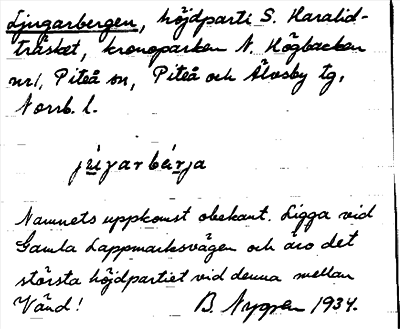 Ljugarbergen, höjdparti S. Haralid-
träsket, kronoparken N. Högbacken
nr 1, Piteå sn, Piteå och Älvsby tg,
Norrb. l.
júgarbár̲ja
Namnets uppkomst obekant. Ligga vid
Gamla Lappmarksvägen och äro det
största höjdpartiet vid denna mellan
Vänd! B. Nygren 1934.